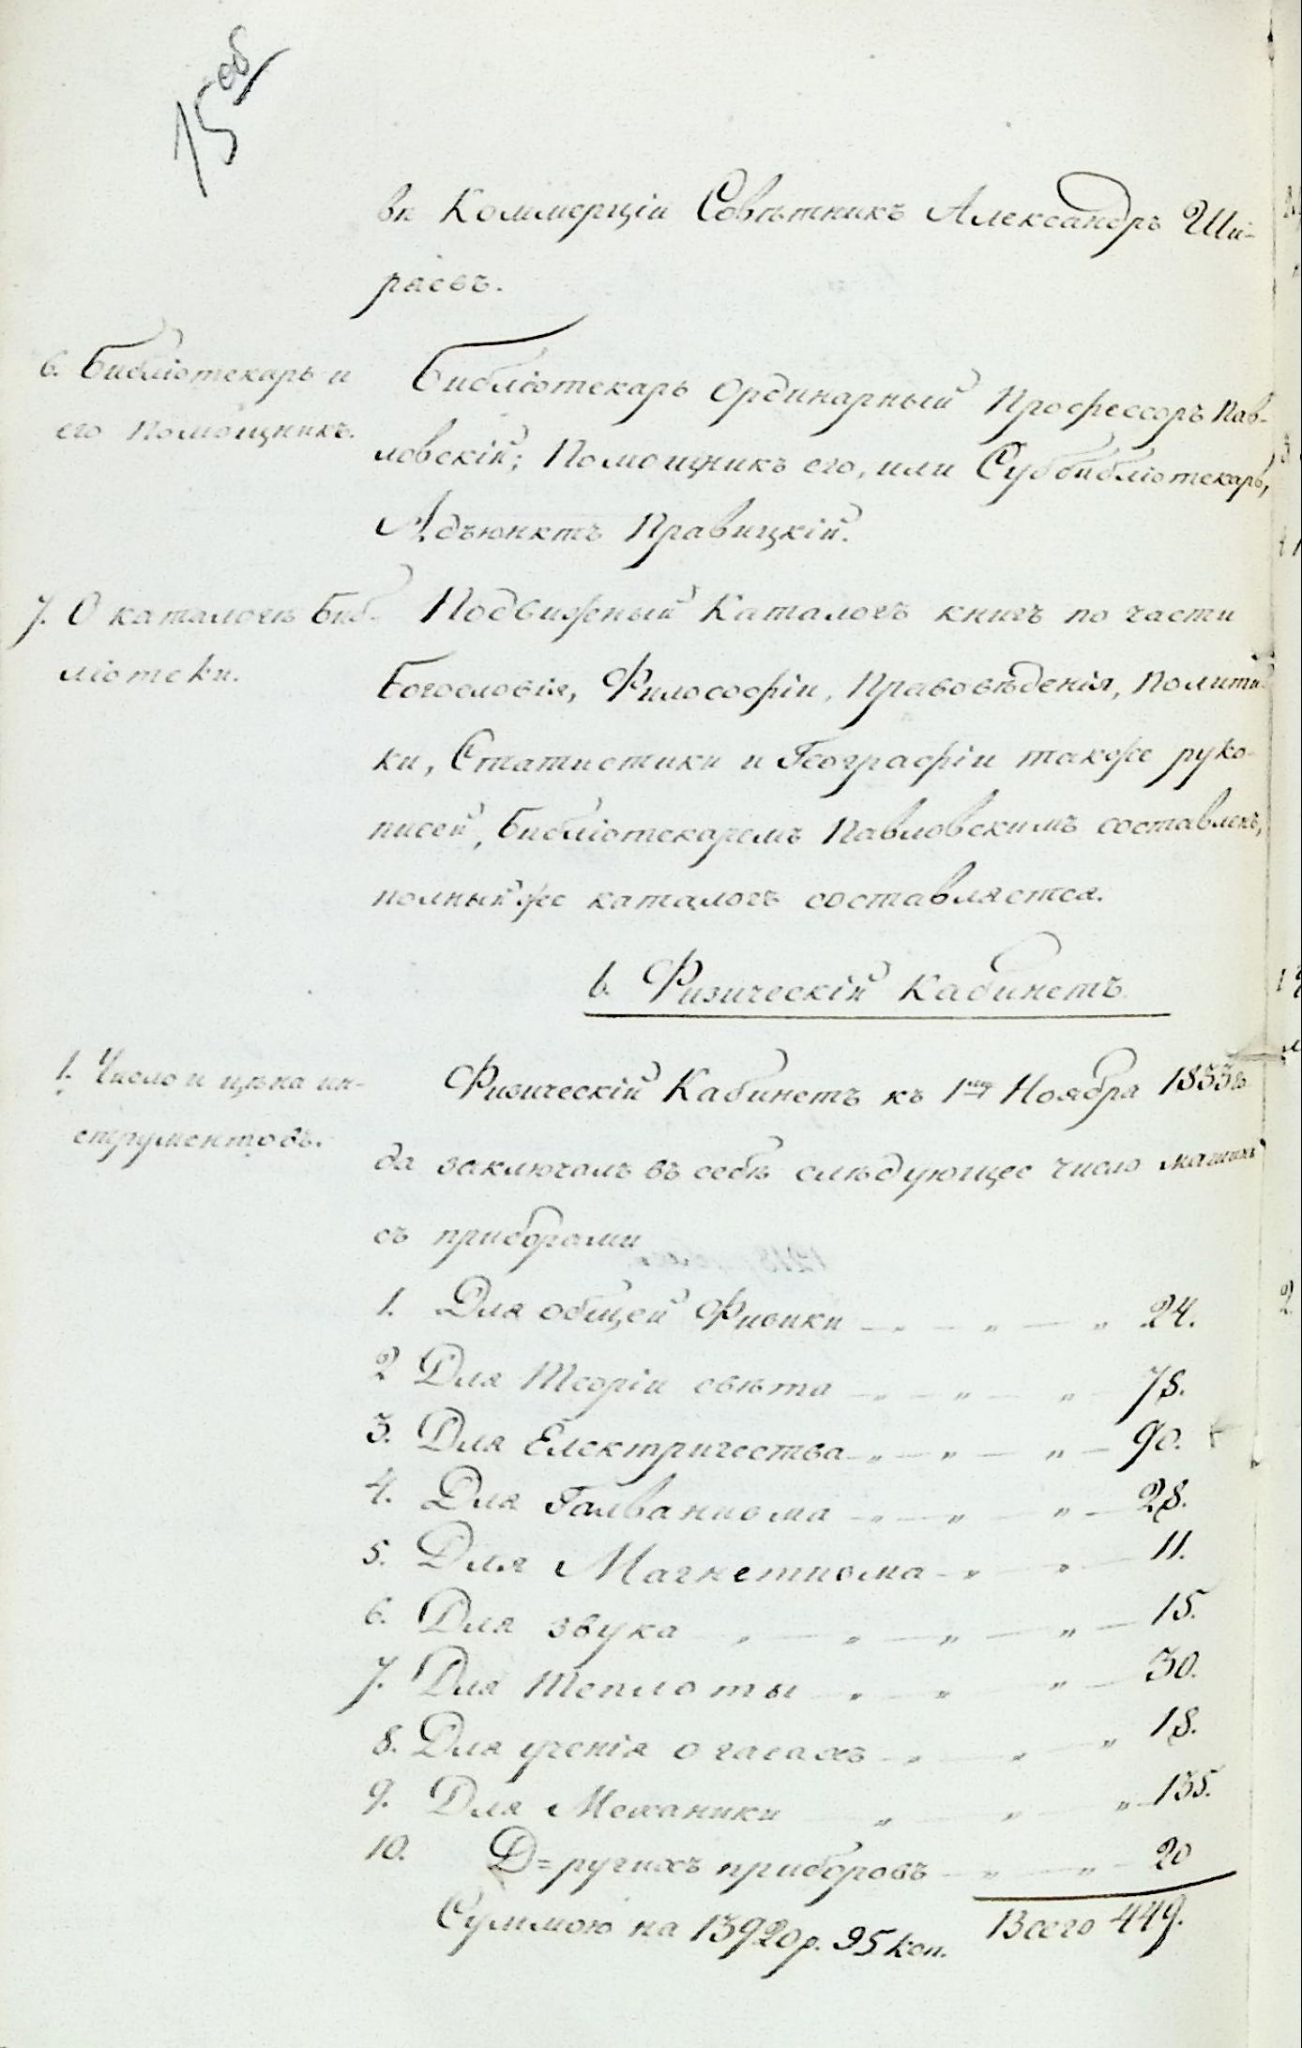 15 об
вн Коммерціи Совѣтникъ Александръ Ши-
ряевъ.
6. Библіотекарь и
его Помощникъ.
Библіотекарь Ординарный Профессоръ Пав-
ловскій; Помощникъ его, или Суббибліотекарь,
Адъюнктъ Правицкій.
7. О каталогѣ Биб-
ліотеки.
Подвижный Каталогъ книгъ по части
Богословія, Философіи, Правовѣденія, Полити-
ки, Статистики и Географіи также руко-
писей, Библіотекаремъ Павловскимъ составленъ,
полный же каталогъ составляется.
b. Физическій Кабинетъ
1. Число и цѣна ин-
струментовъ.
Физическій Кабинетъ къ 1му Ноября 1833 го-
да заключалъ въ себѣ слѣдующее число машинъ
съ приборами
1. Для общей Физики — „ — „ — „ 24.
2 Для Теоріи свѣта — „ — „ — „ — 78.
3. Для Електричества — „ — „ — „ — 90.
4. Для Галванизма — „ — „ — „ — 28.
5. Для Магнетизма — „ — „ — 11.
6. Для звука — „ — „ — „ — „ — 15.
7. Для Теплоты — „ — „ — „ — 30.
8. Для ученія о газахъ — „ — „ — „ 18.
9. Для Механики — „ — „ — „ — 135.
10. Д=ругихъ приборовъ — „ — „ — 20
Суммою на 13920 р. 95 коп. Всего 449.